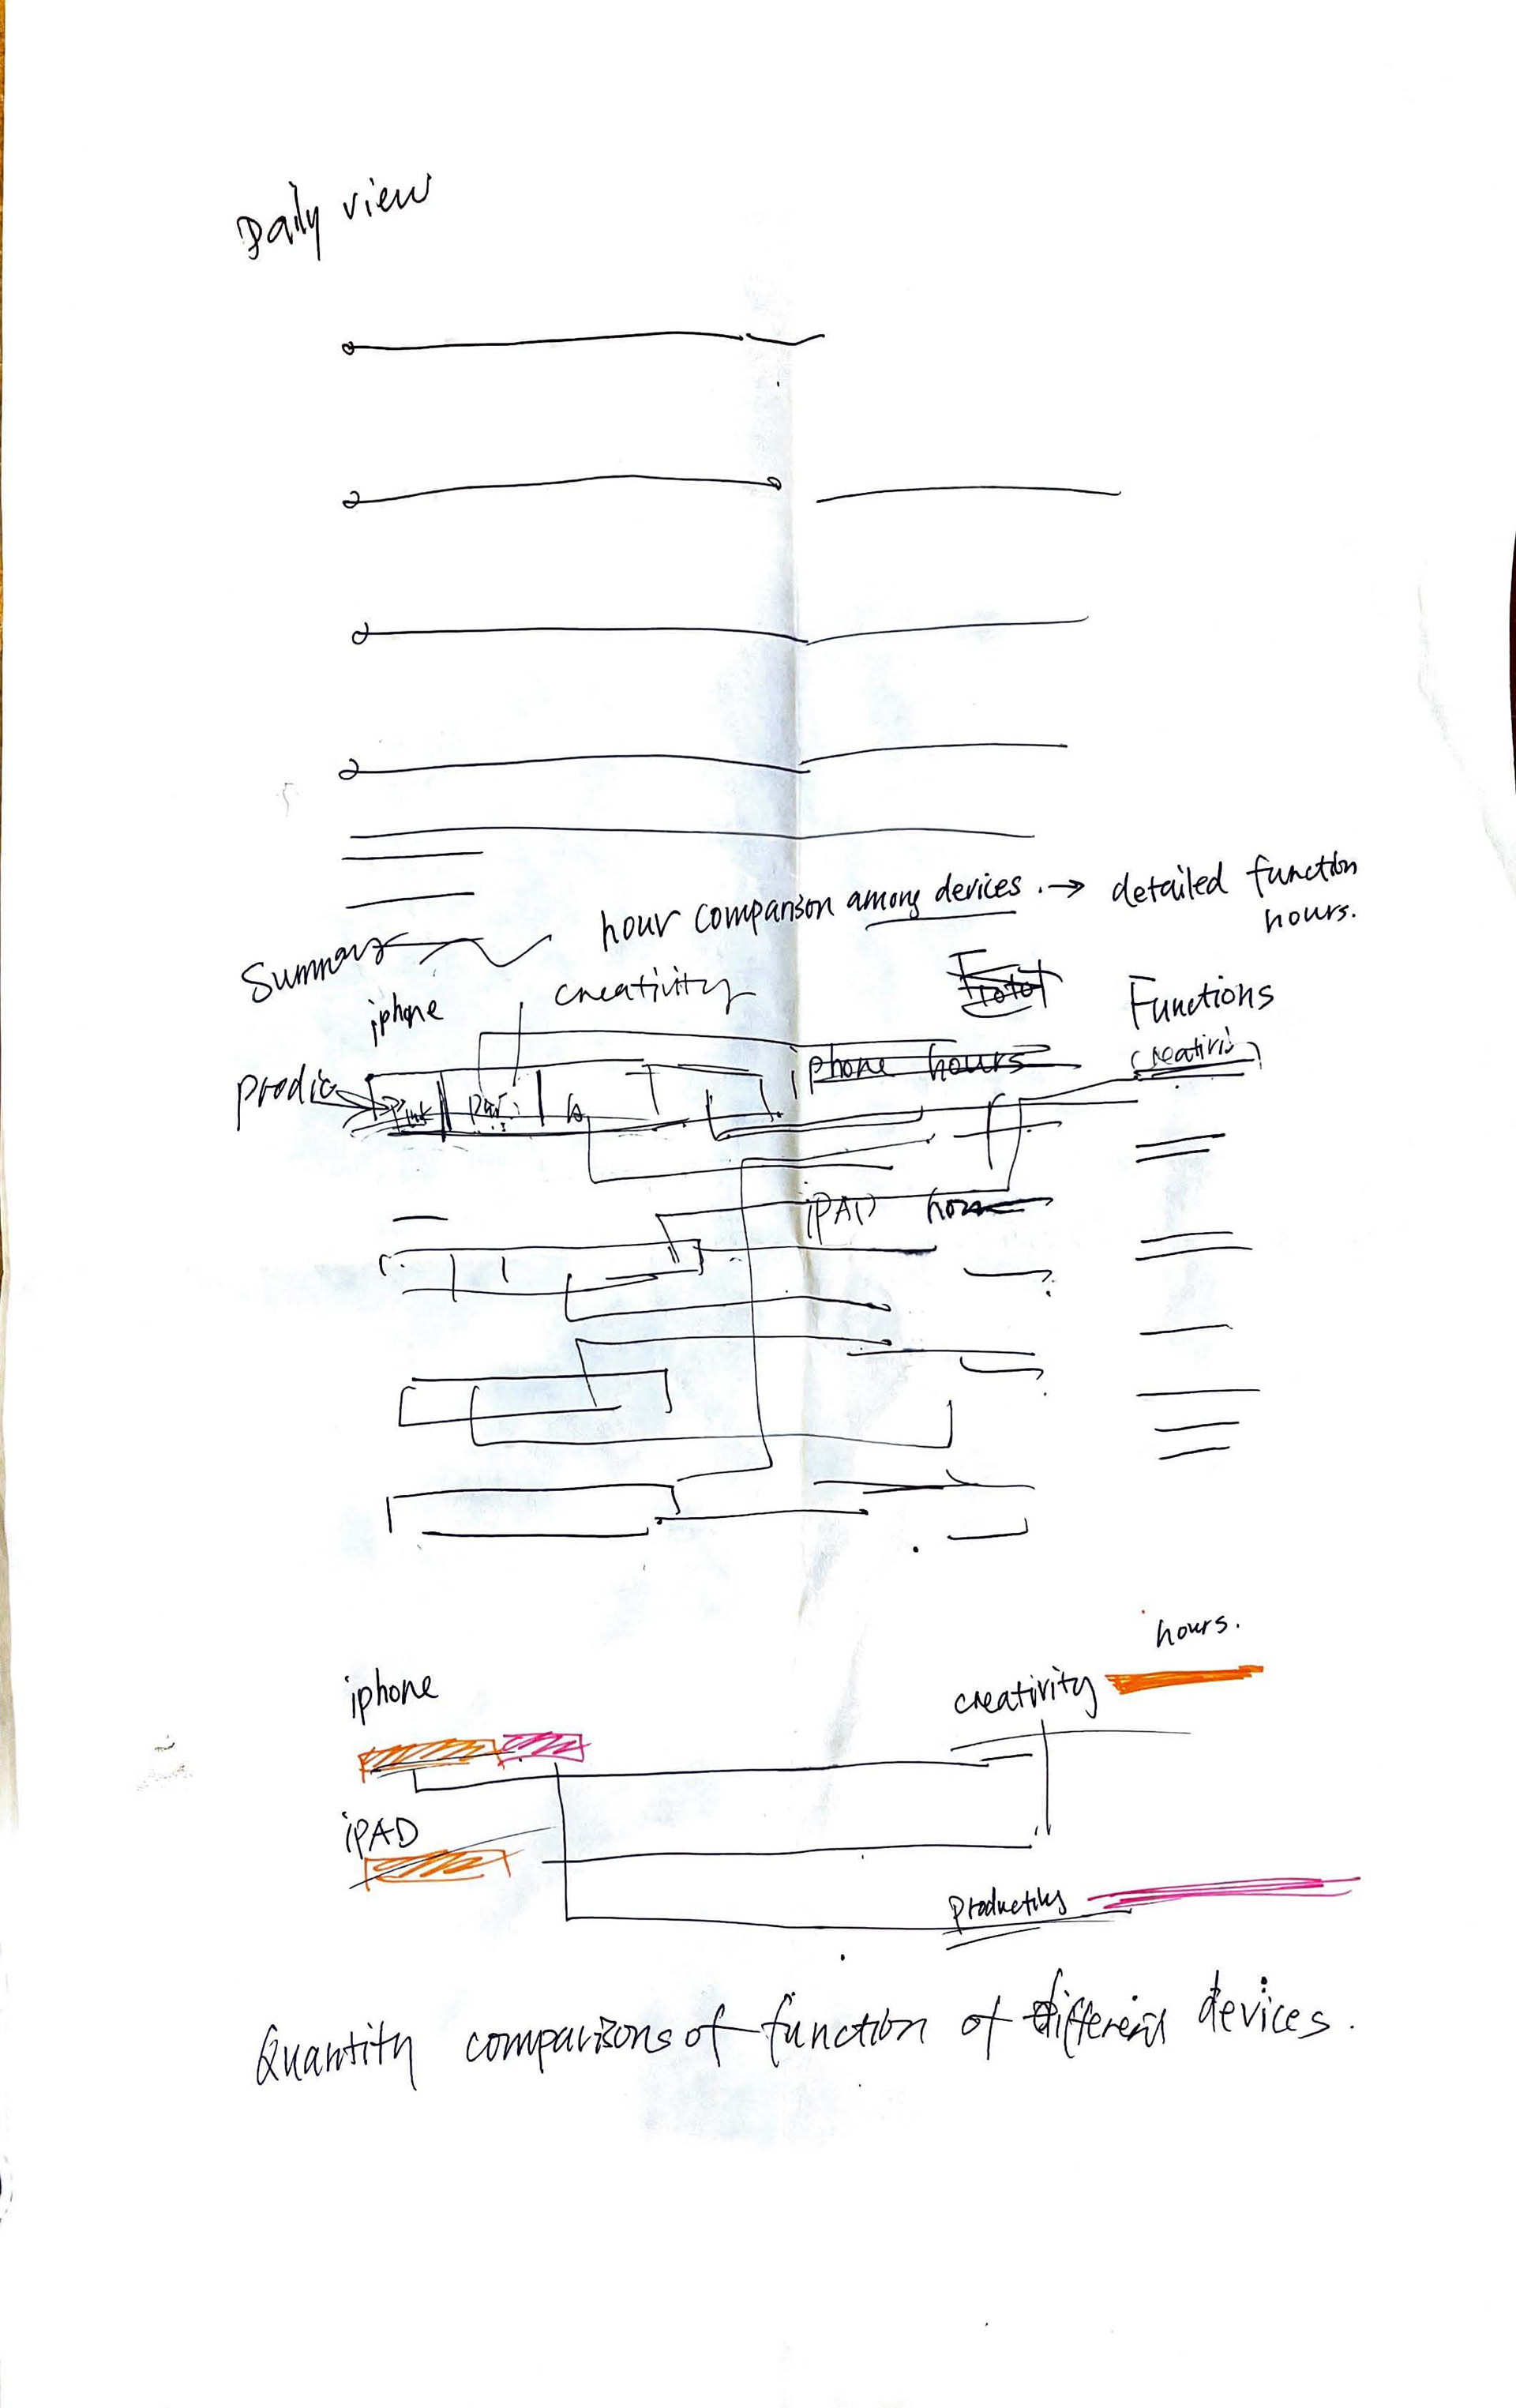 Daily view
hour comparison among devices. → detailed function
hours.
Summary
iphone
creativity
Functions
iphone hours
creativi
Prodic
iPAD
hours.
iphone
creativity
iPAD
Quantity comparisons of function of different devices.